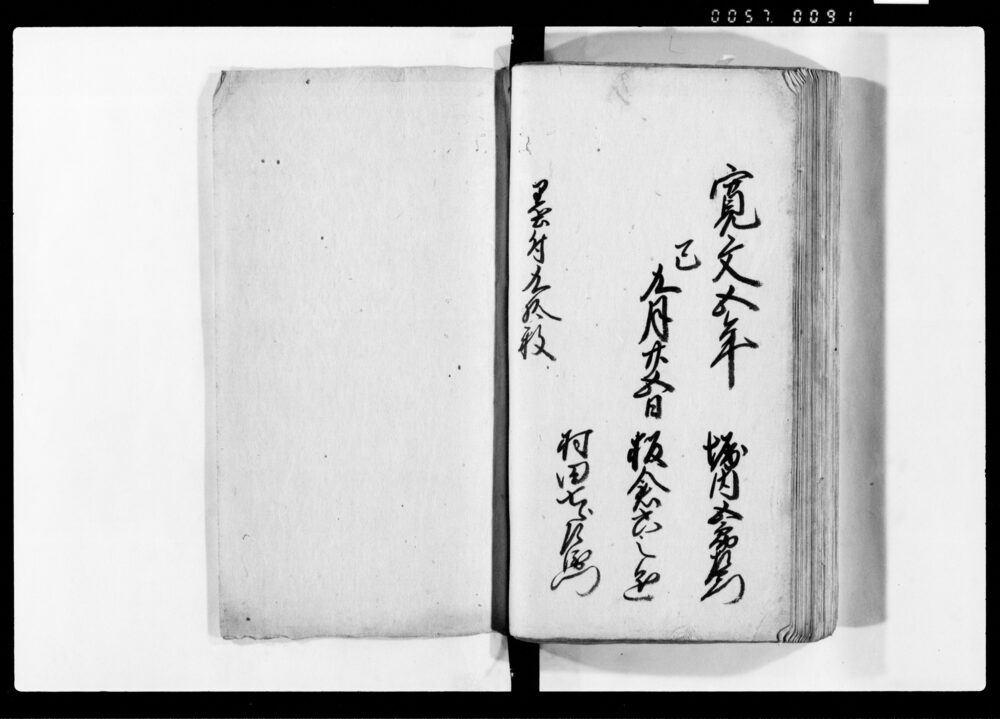 0057. 0091
寛文五年
巳
九月廿五日
堀内五郎兵衛
板倉
村田七郎左衛門
墨付九拾枚